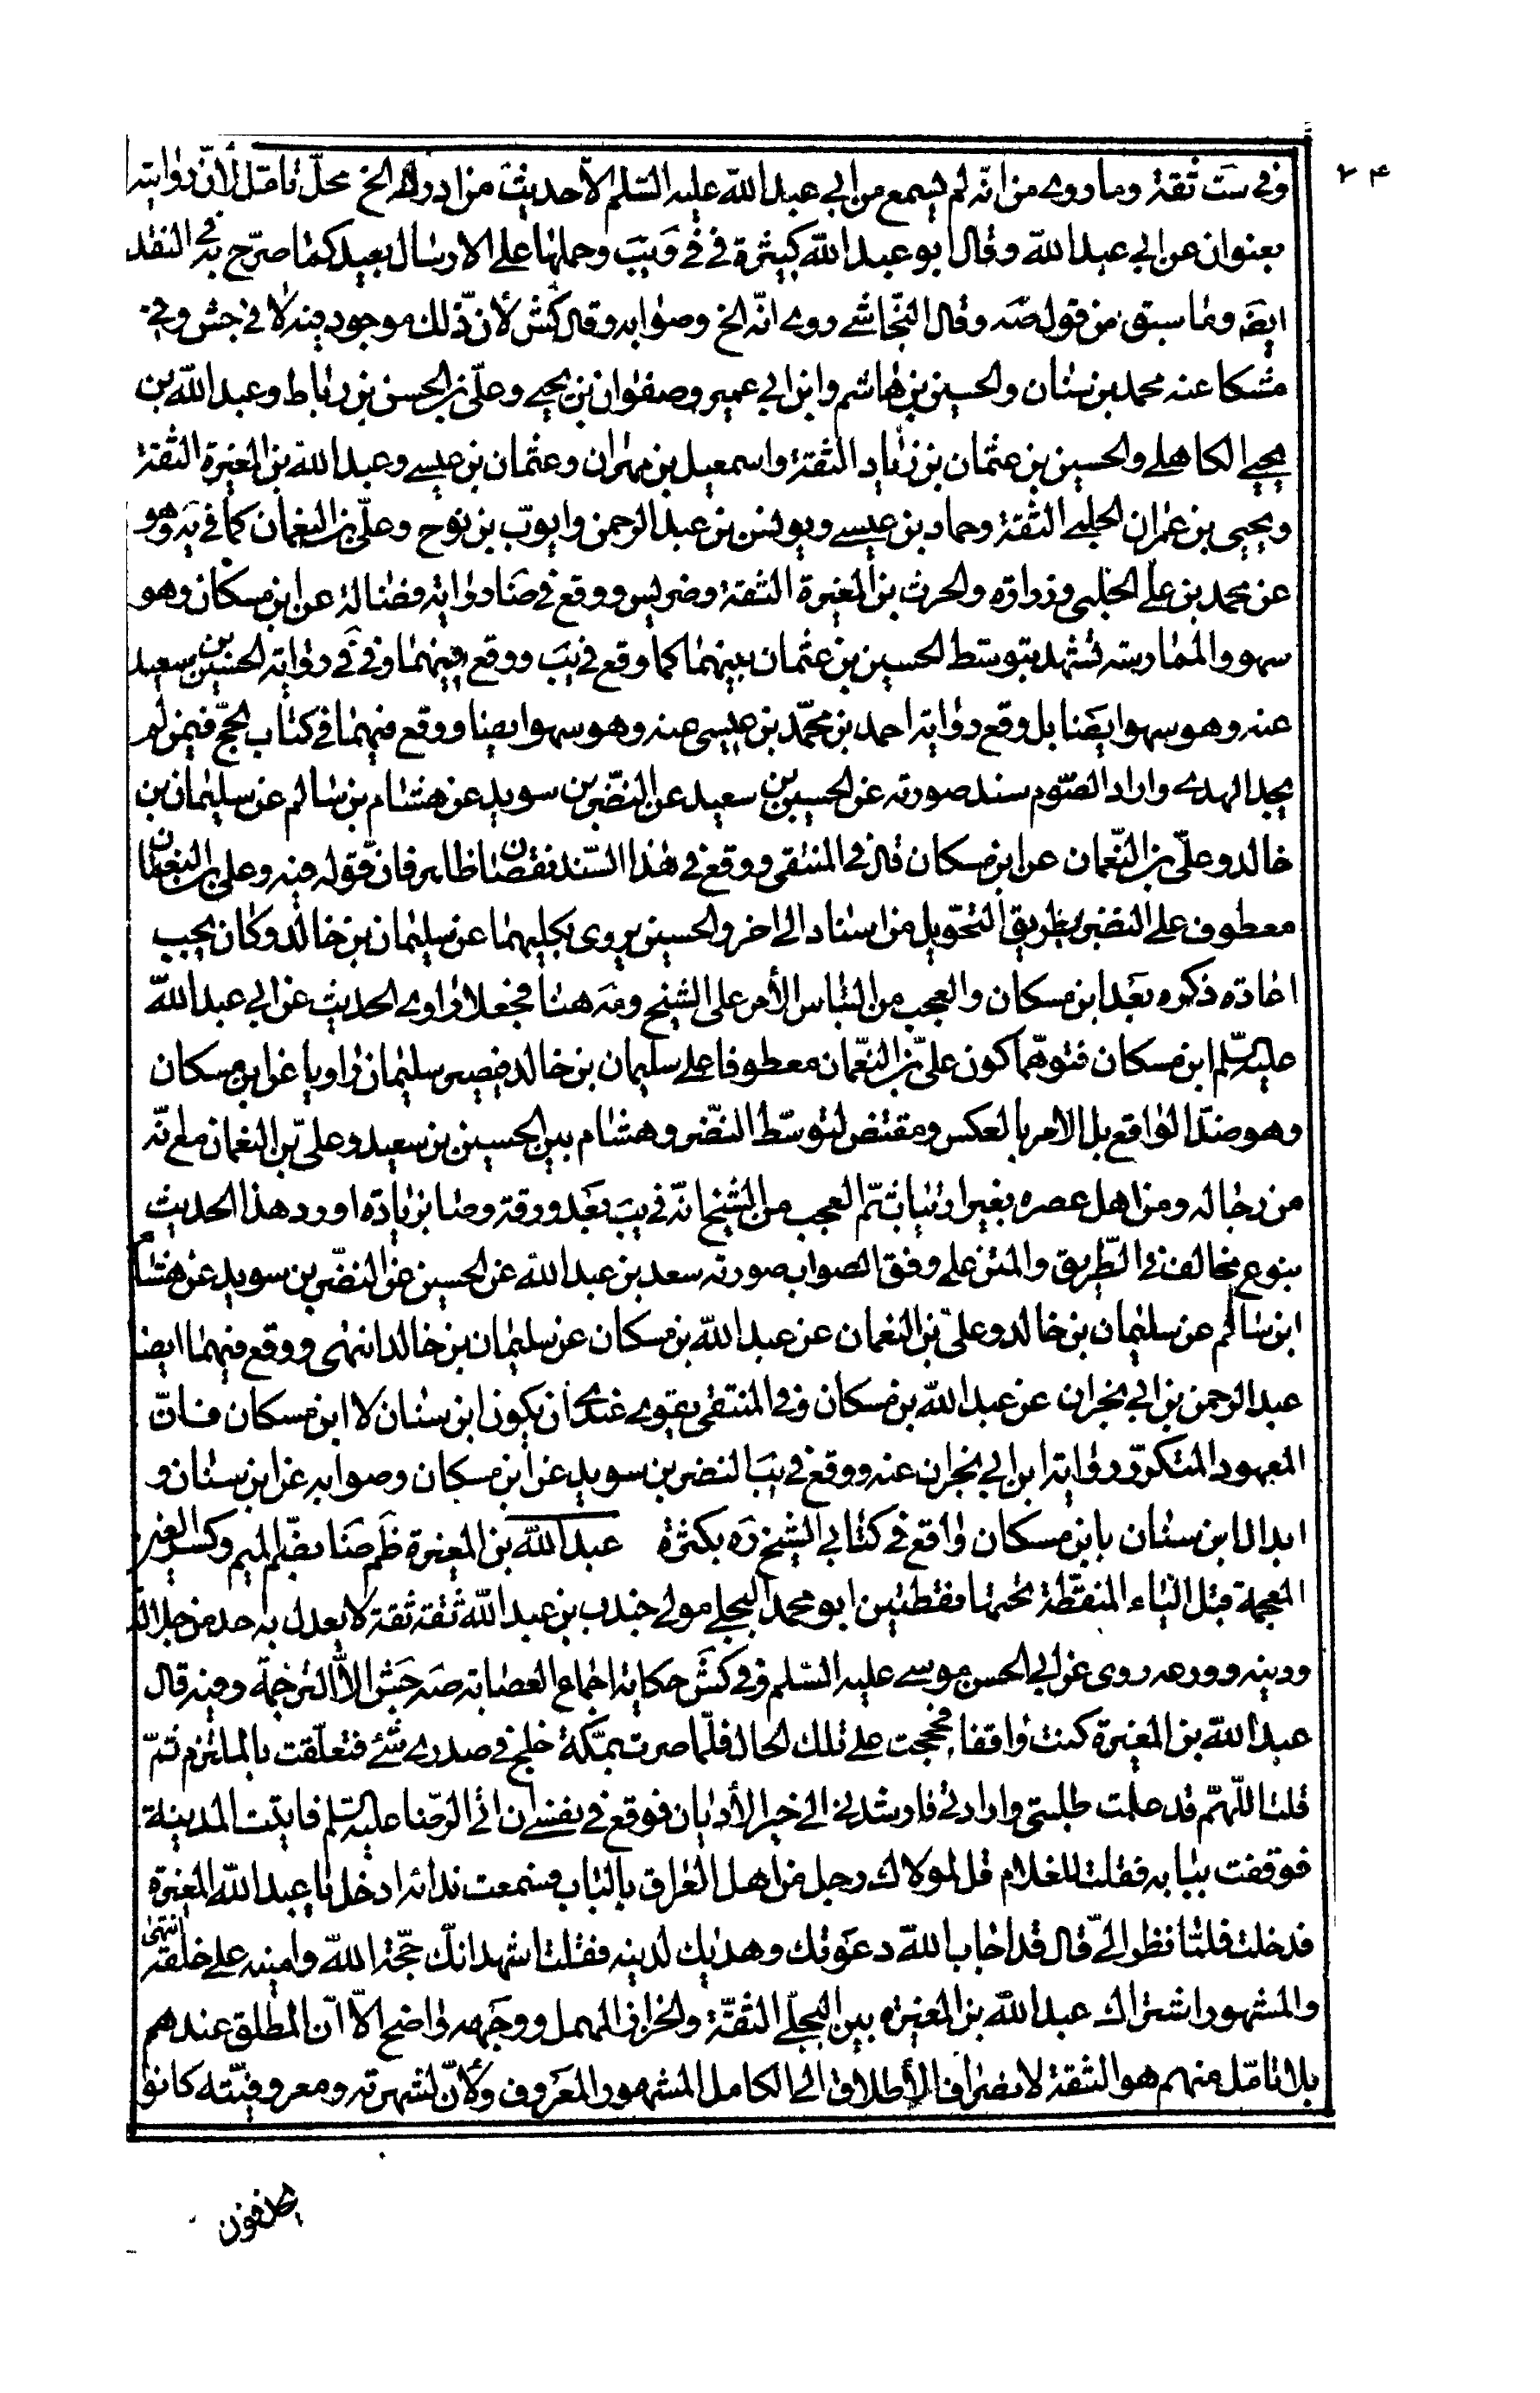 ۲۴
وفي ست ثقة وما روى من انه لم يسمع من ابي عبد الله عليه السلم الا حديث من ادرك الخ محل تامل لأن روايته
بعنوان عن ابي عبد الله وقال ابو عبد الله كثيرة في في ويب وحملها على الارسال بعيد كما صرح به في النقد
ايضا وما سبق من قول صه وقال النجاشي روى انه الخ وصوابه وقال كش لأن ذلك موجود فيه لا في جش وفي
مشكا عنه محمد بن سنان والحسين بن هاشم وابن ابي عمير وصفوان بن يحيى وعلي بن الحسن بن رباط وعبد الله بن
يحيى الكاهلي والحسين بن عثمان بن زياد الثقة واسمعيل بن مهران وعثمان بن عيسى وعبد الله بن المغيرة الثقة
ويحيى بن عمران الحلبي الثقة وحماد بن عيسى ويونس بن عبد الرحمن وايوب بن نوح وعلي بن النعمان كما في يه وهو
عن محمد بن علي الحلبي وزرارة والحرث بن المغيرة الثقة وضريس ووقع في صا رواية فضالة عن ابن مسكان وهو
سهو والممارسة تشهد بتوسط الحسين بن عثمان بينهما كما وقع في يب ووقع فيهما وفي في رواية الحسين بن سعيد
عنه وهو سهو ايضا بل وقع رواية احمد بن محمد بن عيسى عنه وهو سهو ايضا ووقع فيهما في كتاب الحج فيمن لم
يجد الهدى واراد الصوم سند صورته عن الحسين بن سعيد عن النضر بن سويد عن هشام بن سالم عن سليمان بن
خالد وعلي بن النعمان عن ابن مسكان قال في المنتقى ووقع في هذا السند نقصان ظاهر فان قوله فيه وعلي بن النعمان
معطوف على النضر بطريق التحويل من اسناد الى اخر والحسين يروى بكليهما عن سليمان بن خالد وكان يجب
اعادة ذكره بعد ابن مسكان والعجب من التباس الأمر على الشيخ ومه هنا فجعلا راوى الحديث عن ابي عبد الله
عليه السلم ابن مسكان فتوهما كون علي بن النعمان معطوفا على سليمان بن خالد فيصير سليمان راويا عن ابن مسكان
وهو ضد الواقع بل الامر بالعكس ومقتض لتوسط النضر وهشام بين الحسين بن سعيد وعلي بن النعمان مع انه
من رجاله ومن اهل عصره بغير ارتياب ثم العجب من الشيخ انه في يب بعد ورقة وصا بزيادة اورد هذا الحديث
بنوع مخالف في الطريق والمتن على وفق الصواب صورته سعد بن عبد الله عن الحسين عن النضر بن سويد عن هشام
ابن سالم عن سليمان بن خالد وعلي بن النعمان عن عبد الله بن مسكان عن سليمان بن خالد انتهى ووقع فيهما ايضا
عبد الرحمن بن ابي نجران عن عبد الله بن مسكان وفي المنتقى يقوى عندى ان يكون ابن سنان لا ابن مسكان فان
المعهود المتكرر رواية ابن ابي نجران عنه ووقع في يب النضر بن سويد عن ابن مسكان وصوابه عن ابن سنان و
ابدال ابن سنان بابن مسكان واقع في كتابي الشيخ ره بكثرة عبد الله بن المغيرة ظم ضا بضم الميم وكسر الغين
المعجمة قبل الياء المنقطة تحتها نقطتين ابو محمد البجلي مولى جندب بن عبد الله ثقة ثقة لا يعدل به احد من جلالته
ودينه وورعه روى عن ابي الحسن موسى عليه السلم وفي كش حكاية اجماع العصابة صه جش الا الترجمة وفيه قال
عبد الله بن المغيرة كنت واقفا فحججت على تلك الحال فلما صرت بمكة خلج في صدرى شئ فتعلقت بالملتزم ثم
قلت اللهم قد علمت طلبتي وارادتي فارشدني الى خير الأديان فوقع في نفسي ان اتي الرضا عليه السلم فاتيت المدينة
فوقفت ببابه فقلت للغلام قل لمولاك رجل من اهل العراق بالباب فسمعت ندائه ادخل يا عبد الله المغيرة
فدخلت فلما نظر الي قال قد اجاب الله دعوتك وهديك لدينه فقلت اشهد انك حجة الله وامينه على خلقه انتهى
والمشهور اشتراك عبد الله بن المغيرة بين البجلي الثقة والخزاز المهمل ووجهه واضح الا ان المطلق عندهم
بلا تامل منهم هو الثقة لانصراف الأطلاق الى الكامل المشهور المعروف ولأن لشهرته ومعروفيته كانوا